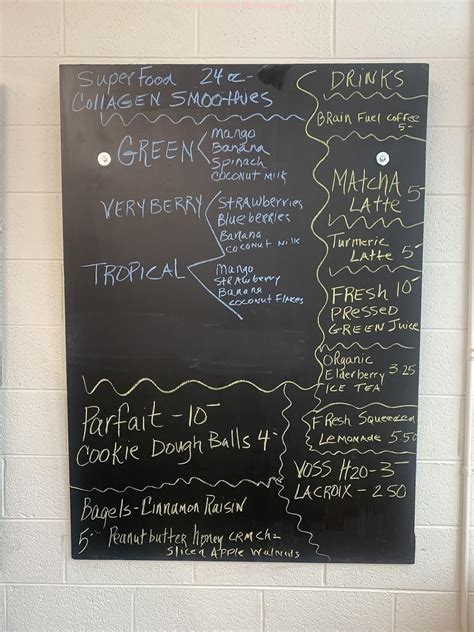 SuperFood 24oz-
Collagen Smoothies
GREEN
Mango
Banana
Spinach
Coconut milk
VERY BERRY
Strawberries
Blueberries
Banana
Coconut Milk
TROPICAL
Mango
Strawberry
Banana
Coconut Flakes
Parfait -10
Cookie Dough Balls 4
Bagels-Cinnamon Raisin
5 Peanutbutter Honey CRMCHZ
Sliced Apple Walnuts
DRINKS
Brain Fuel Coffee
5-
MATCHA
LATTE 5-
Turmeric
Latte 5-
FRESH 10
PRESSED
GREEN Juice
ORganic
Elderberry 3.25
ICE TEA
FResh Squeezed
Lemonade 5.50
VOSS H20-3
LACROIX - 2.50